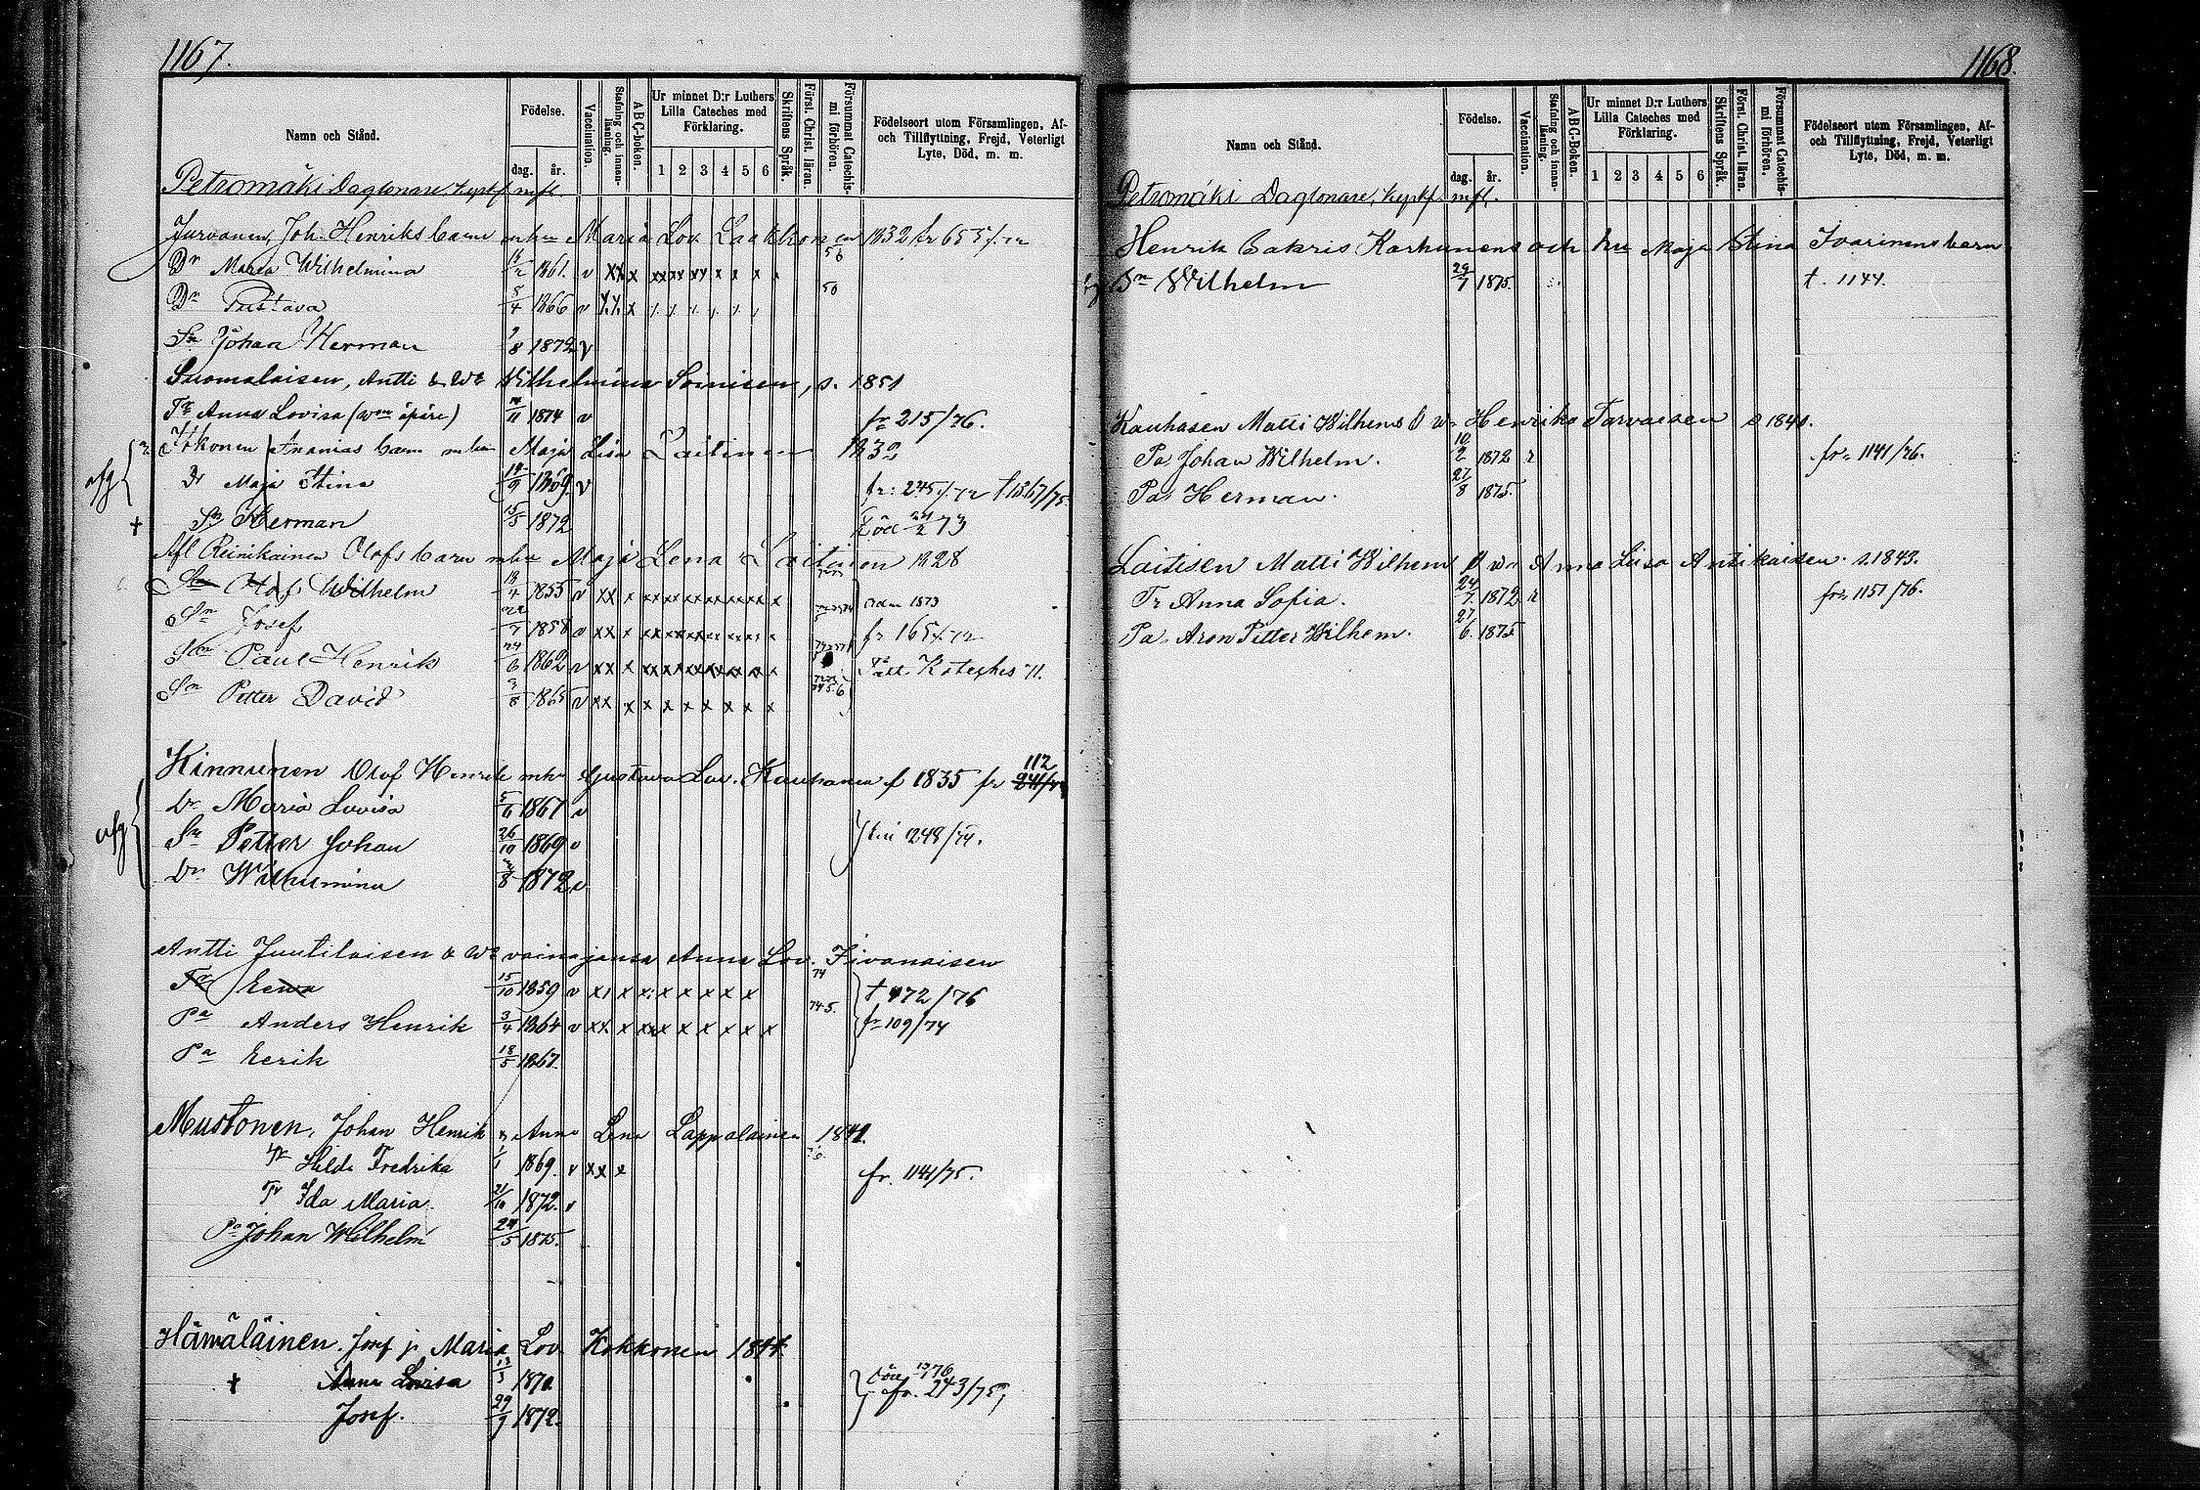 1167.
Namn och Stånd.
Födelse.
dag. år.
Vaccination.
Stafning och innanläsning.
ABC-boken.
Ur minnet D:r Luthers Lilla Cateches med Förklaring.
1 2 3 4 5 6
Skriftens Språk.
Först. Christ. läran.
Försummat Catechismi förhören.
Födelseort utom Församlingen, Af- och Tillflyttning, Frejd, Veterligt Lyte, Död, m. m.
Petromäki Daglonare, mfl.
Jurvanen, Joh. Henriks barn Maria Lov. Laakkonen 1832 fr 655/72
Dr Maria Wilhelmina 1861. v
Dr Gustava 5/4 1866 v
Sn Johan Herman 8 1872 v
Suomalaisen, Antti & Wa Wilhelmina Soinisen, s. 1851
Tr Anna Lovisa (wm äpäre) 11 1874 v fr 215/76.
Itkonen Ananias barn Maja Lisa Laitinen 1832
afg Dr Maja Stina 9 1869 v fr: 245/72 †1367/75.
† Sn Herman 15/5 1872 Död 24/2 73
Afl Reinikainen Olofs barn mhu Maja Lena Laitinen 1828
Sn Olof Wilhelm 18/4 1855 v 1873
Sn Josef 7 1858 v fr 165/72
Sn Paul Henrik 24/6 1862 v
Sn Petter David 3/8 1865 v
Kinnunen Olof Henrik mhu Gustava Lov. Kauhanen f 1835 fr 112
Dr Maria Lovisa 5/6 1867 v
afg Sn Petter Johan 26/10 1869 v 248/74.
Dr Wilhelmina 8 1872 v
Antti Juutilaisen & Wa vainajansa Anna Lov. Tivanaisen
Tr Eewa 15/10 1859 v † 472/76
Pa Anders Henrik 3/4 1864 v fr 109/74
Pa Eerik 18/5 1867.
Mustonen, Johan Henrik Anna Lena Lappalainen 1841.
Tr Hilda Fredrika 1/1 1869. v fr. 1141/75.
Tr Ida Maria. 21/10 1872. v
Pa Johan Wilhelm 24/5 1875.
Hämäläinen. Josef ja Maria Lov. Kokkonen 1844.
† Anna Lovisa 1870
Josef. 29/9 1872. fr. 243/75
1168.
Namn och Stånd.
Födelse.
dag. år.
Vaccination.
Stafning och innanläsning.
ABC-Boken.
Ur minnet D:r Luthers Lilla Cateches med Förklaring.
1 2 3 4 5 6
Skriftens Språk.
Först. Christ. läran.
Försummat Catechismi förhören.
Födelseort utom Församlingen, Af- och Tillflyttning, Frejd, Veterligt Lyte, Död, m. m.
Petromäki Daglonare, mfl.
Henrik Zakris Karhunens och hu Maja Stina Ivarinens barn
Sn Wilhelm 29/7 1875. t. 1144.
Kauhasen Matti Wilhems & w. Henrika Tarvaisen s 1840.
Pa Johan Wilhelm. 10/2 1872 fr 1141/76.
Pa Herman. 27/8 1875.
Laitisen Matti Wilhem & wa Anna Liisa Antikaisen. s. 1843.
Tr Anna Sofia. 24/7 1872 fr 1151/76.
Pa Aron Petter Wilhem. 27/6 1875